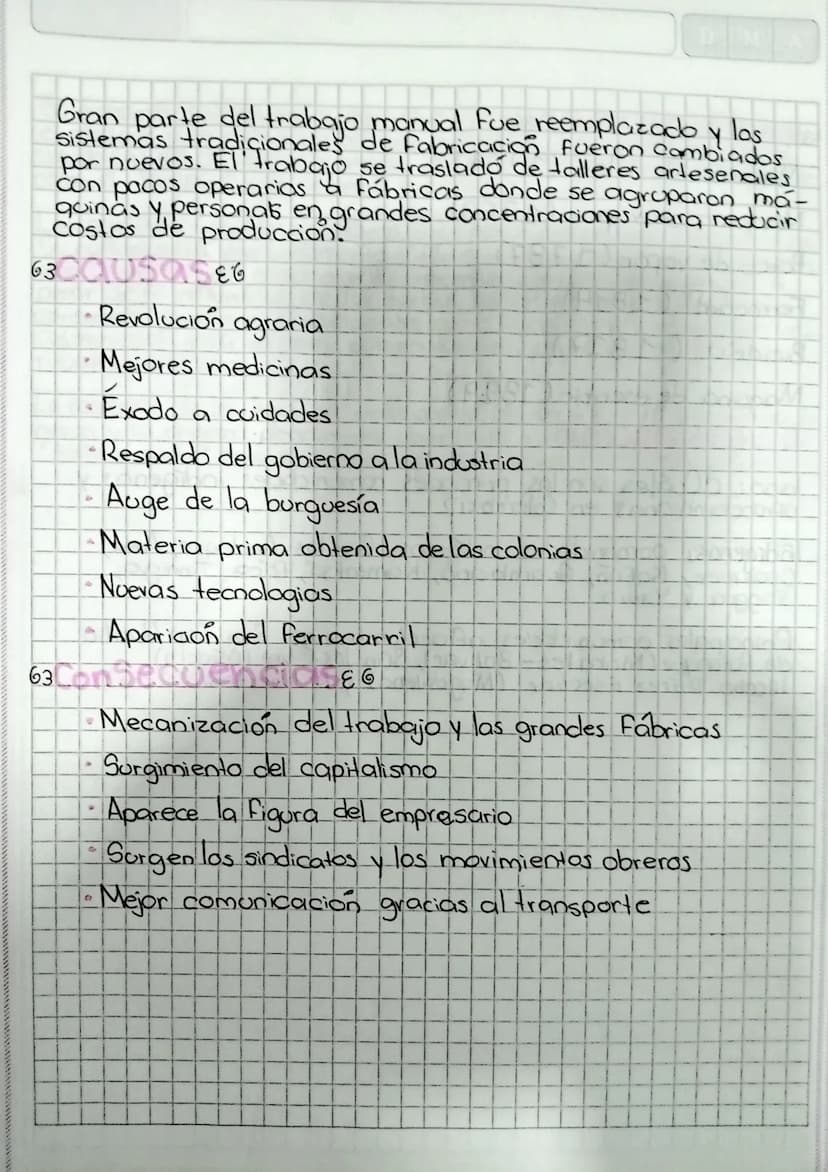 Gran parte del trabajo manual fue reemplazado y los
sistemas tradicionales de fabricación fueron cambiados
por nuevos. El trabajo se trasladó de talleres artesenales
con pocos operarios a fábricas donde se agruparon má-
quinas y personas en grandes concentraciones para reducir
costos de producción.
63 Causas EG
· Revolución agraria
· Mejores medicinas
· Éxodo a cuidades
· Respaldo del gobierno a la industria
· Auge de la burguesía
· Materia prima obtenida de las colonias
· Nuevas tecnologias
· Aparición del ferrocarril
63 Consecuencias EG
· Mecanización del trabajo y las grandes fábricas
· Surgimiento del capitalismo
· Aparece la figura del empresario
· Surgen los sindicatos y los movimientos obreros
· Mejor comunicación gracias al transporte